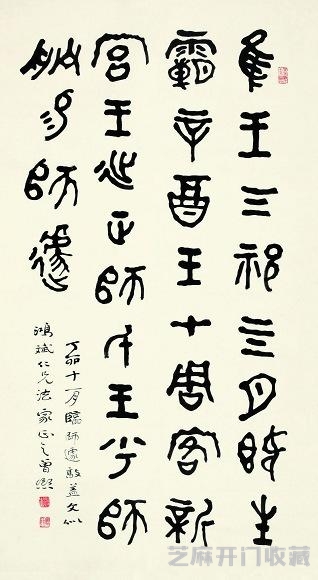 隹王三祀亖月既生
霸辛酉王才周客新
宮王㢟正師氏王乎師
朕易師遽
丁卯十一月臨師遽敦蓋文似
鴻斌仁兄法家正之曾熙
芝麻开门收藏